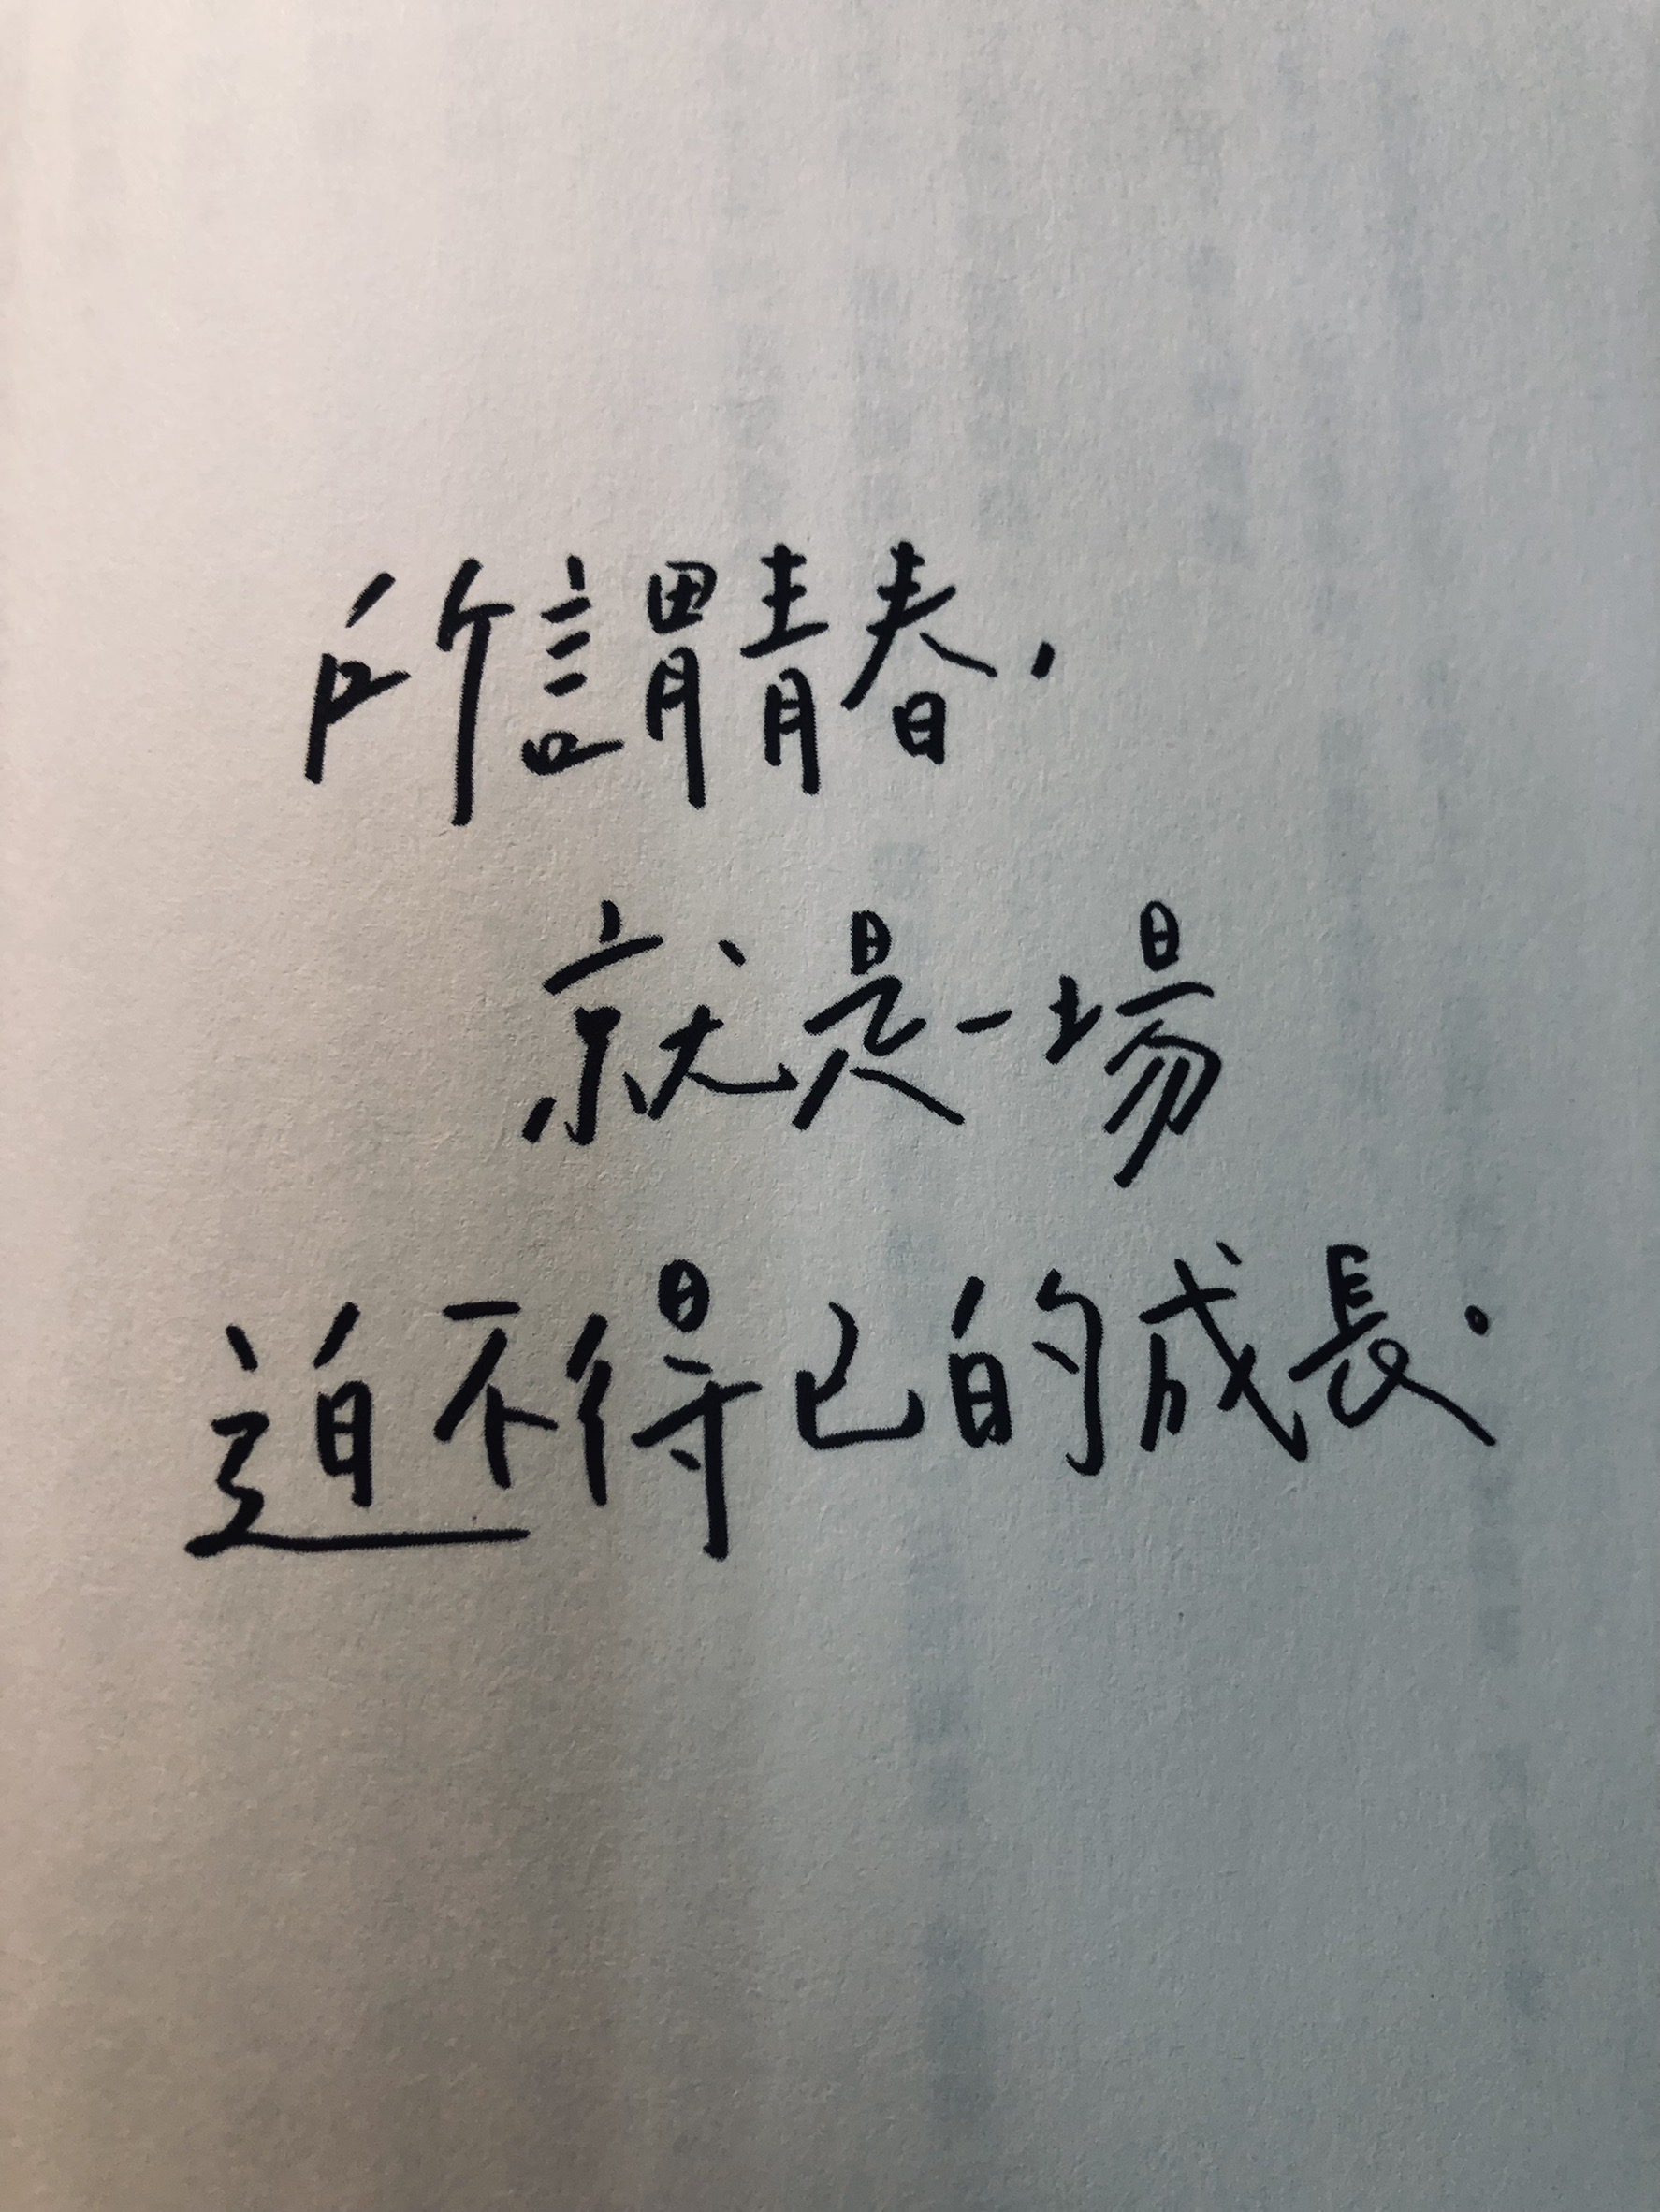 所謂青春，
就是一場
迫不得已的成長．